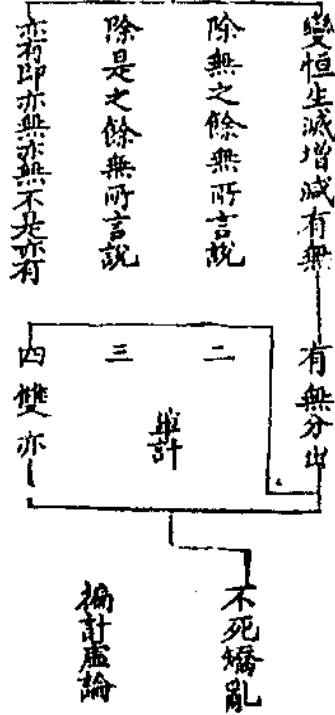 變恒生滅增减有無
除無之餘無所言說
除是之餘無所言說
亦有即亦無亦無不是亦有
有無分出
二
三
四雙亦
計
不死矯亂
徧計虛論